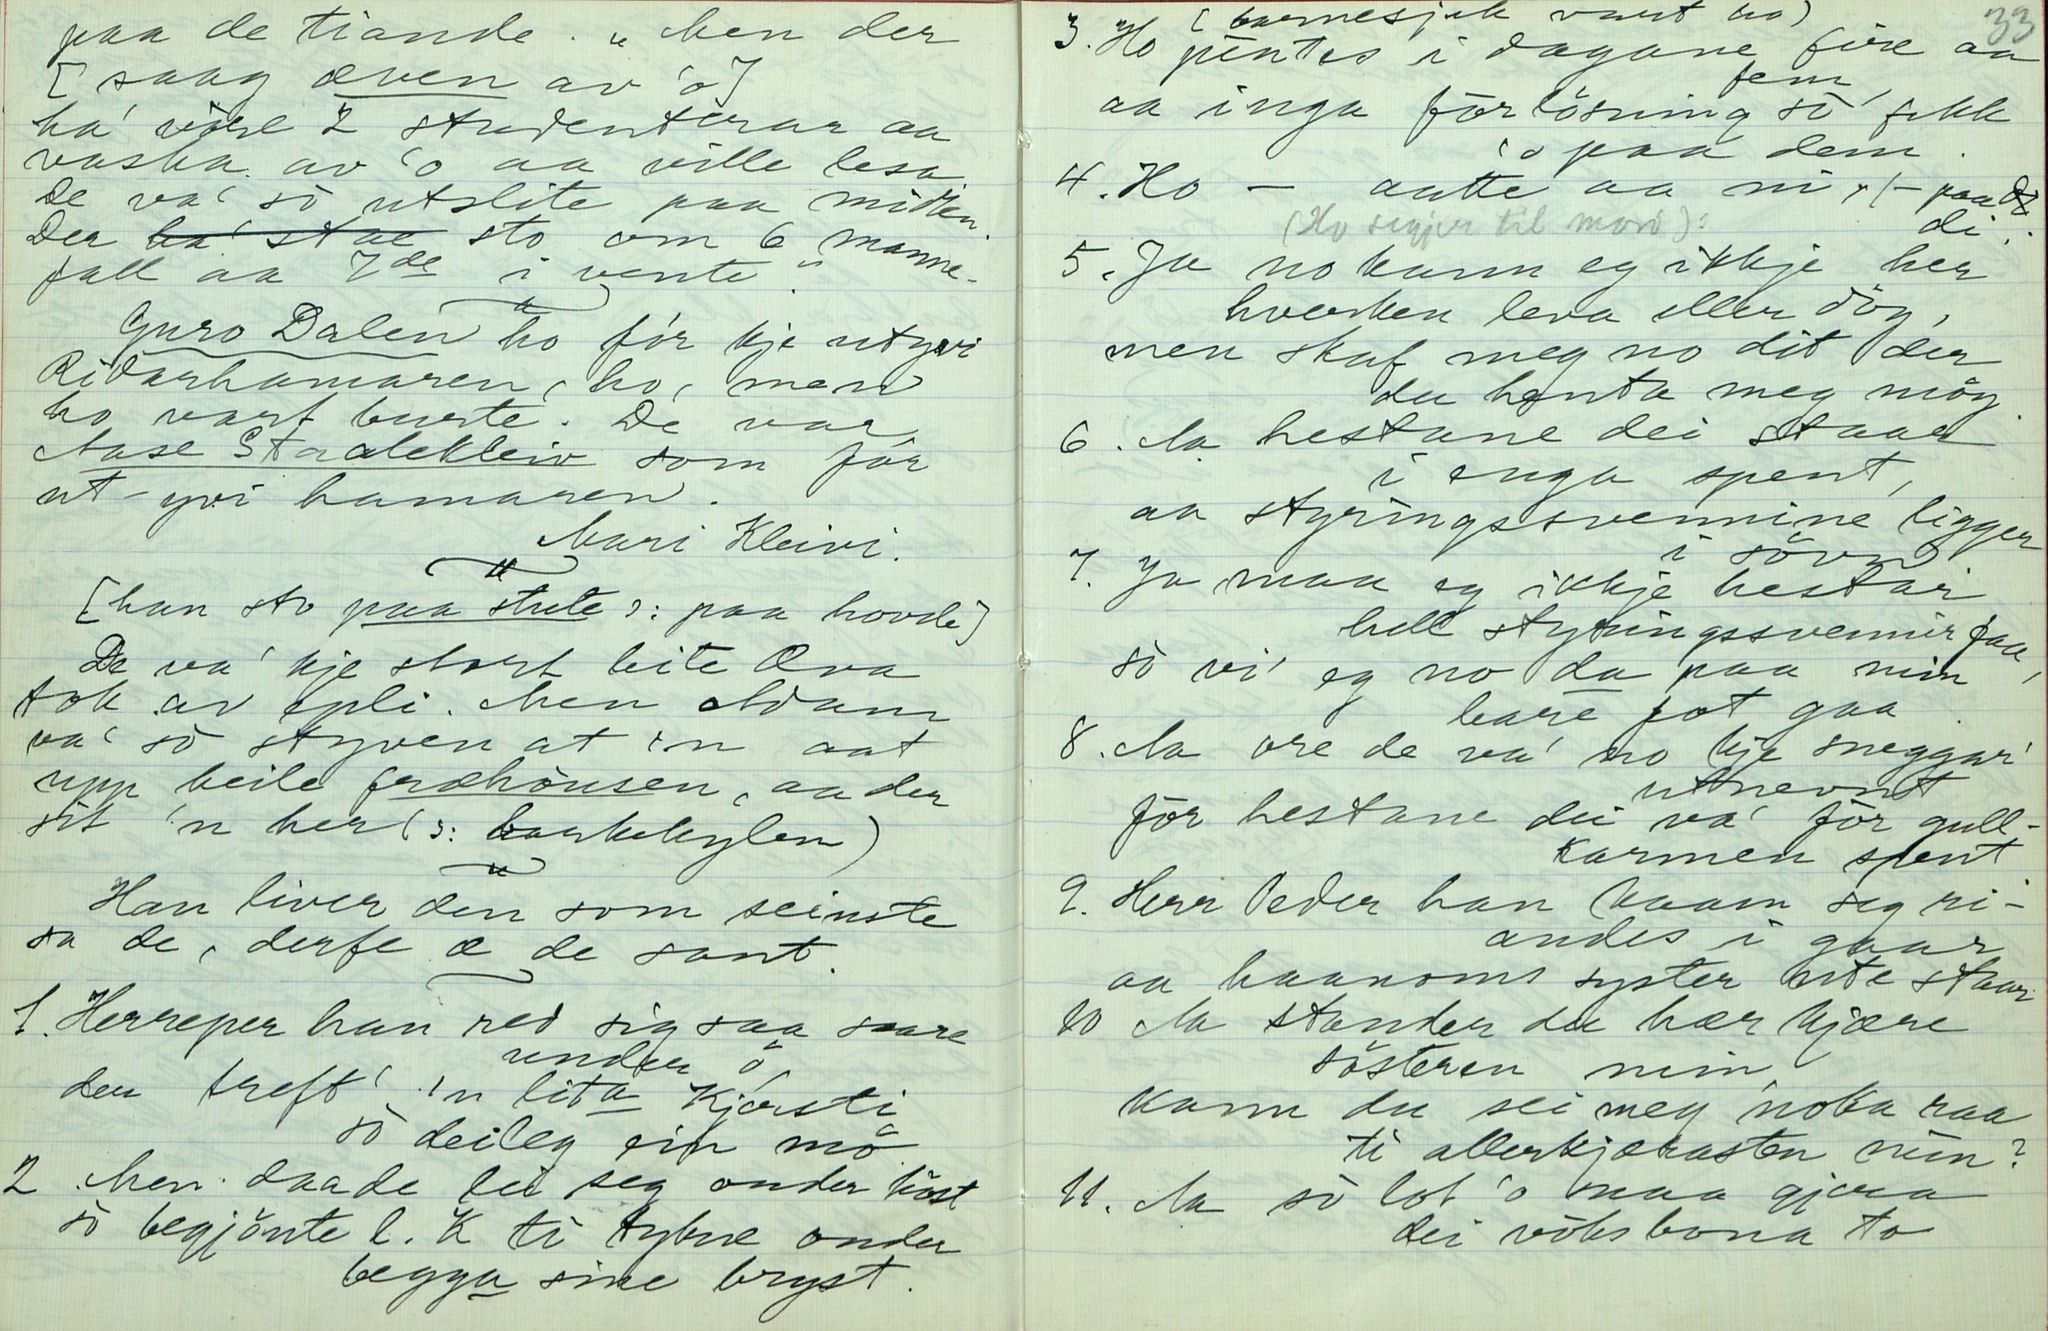 paa de tiande. " Men der
[saag æven av 'o]
ha' vöre 2 studenterar aa
vaska av 'o aa ville lesa
De va' so utslite paa midten.
Der ha' stae sto om 6 manne-
fall aa 7de i vente."
Guro Dalen ho för kje utyvi
Ridarhamaren, ho, men
ho vart burte. De var
Aase Staalekleiv som för
ut-yvi hamaren.
Mari Kleivi.
[han sto paa stute ɔ: paa hovde]
De va' kje stort bite Æva
tok av epli. Men Adam
va' so styven at 'n aat
upp heile fræhousen, aa der
sit 'n her (ɔ: barkekylen)
Han liver den som seinste
sa de, derfe æ de sant.
1. Herreper han red sig saa saare
under ö
der treft' 'n lita Kjersti
so deileg ein mö
2 Men daade lei seg onder höst
so begjönte l. K ti tykne onder
begga sine bryst.
33
[barnesjuk vart ho]
3. Ho pintes i dagane fire aa
fem,
aa inga förlösning so fikk
'o paa dem.
4. Ho – aatte aa ni, /– paa
di.
(Ho segjer til mori):
5. Ja no kann eg ikkje her
hverken leva eller döy,
men skaf meg no dit der
du henta meg möy.
6. Aa hestane dei staar
i enga spent,
aa styringssvennine ligger
i sövn
7. Ja maa eg ikkje hestar
hell styringssvennir faa,
so vi' eg no da paa min
bare fot gaa.
8. Aa ore de va' no kje sneggar'
utnevnt
för hestane dei va' för gull-
karmen spent
9. Herr Peder han kaam seg ri-
andes i gaar
aa haanoms syster ute staar.
10 Aa stander du hær kjære
sösteren min,
kann du sei meg noka raa
ti allerkjærasten min?
11. Aa so lot 'o maa gjera
dei voksbona to